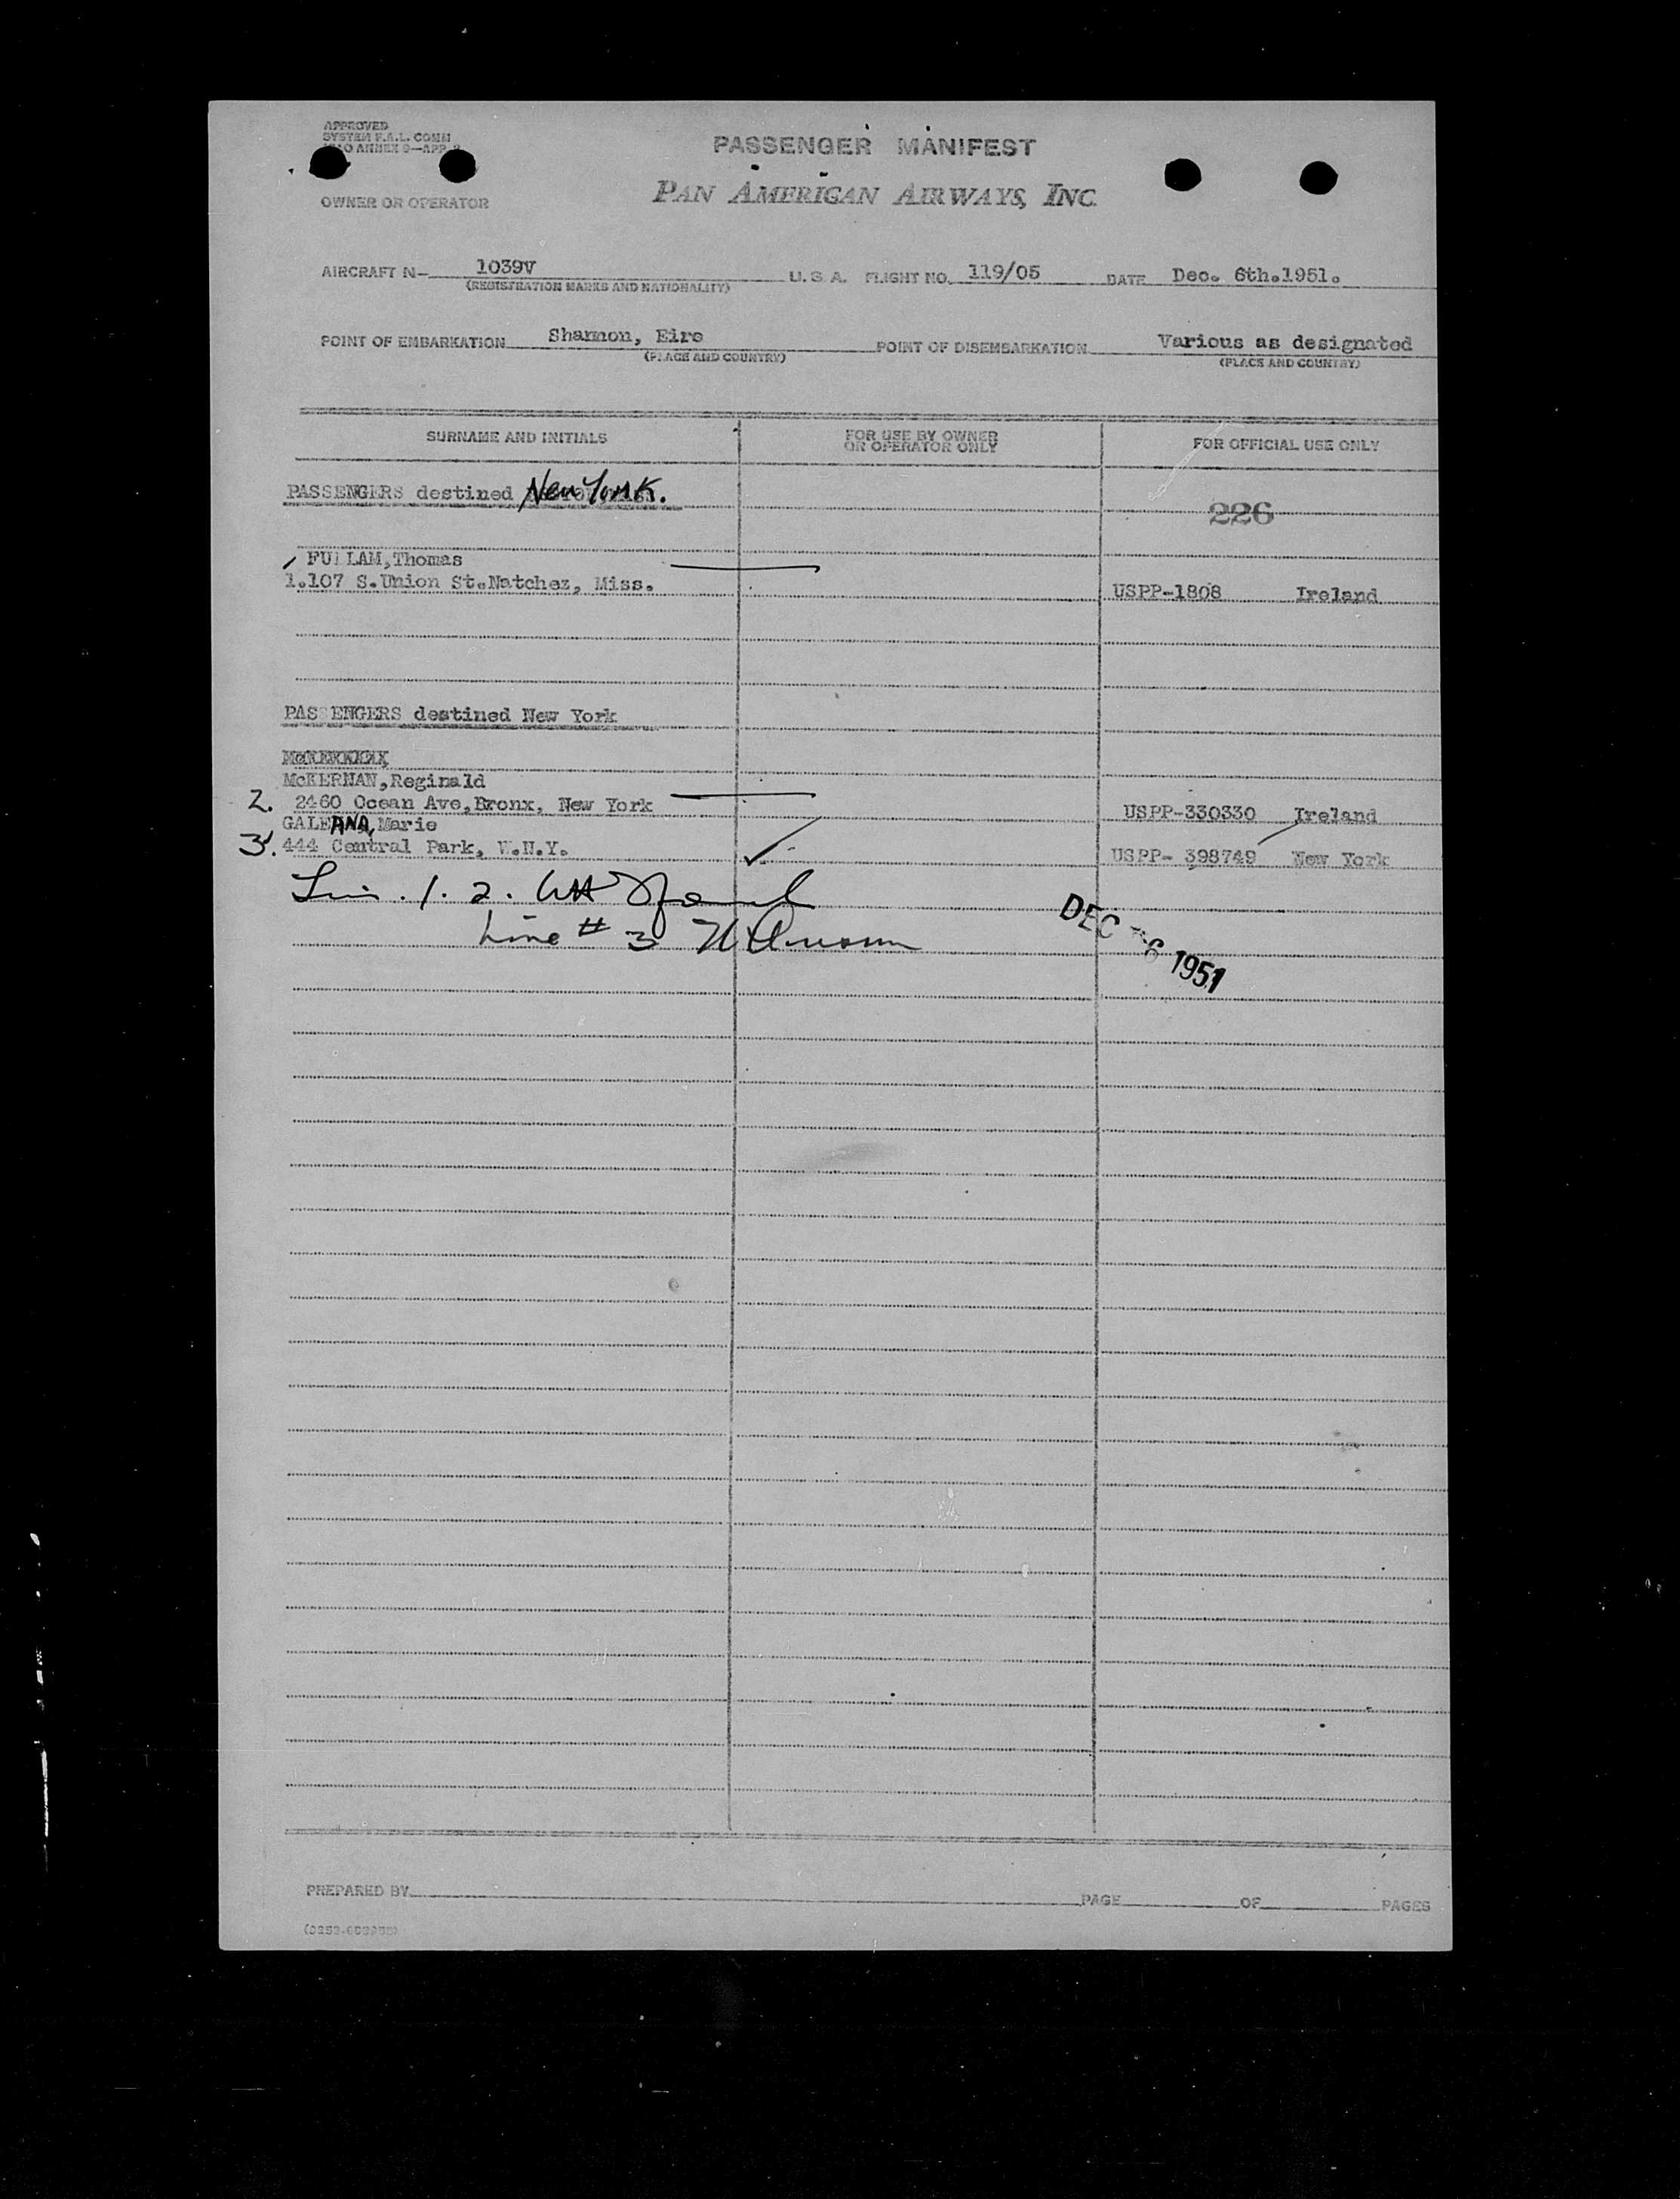 APPROVED
SYSTEM F.A.L. COMM
ANNEX 9—APP.
PASSENGER MANIFEST
PAN AMERICAN AIRWAYS, INC.
OWNER OR OPERATOR
AIRCRAFT N— 1039V U.S.A. FLIGHT NO. 119/05 DATE Dec. 6th.1951.
(REGISTRATION MARKS AND NATIONALITY)
POINT OF EMBARKATION Shannon, Eire POINT OF DISEMBARKATION Various as designated
(PLACE AND COUNTRY) (PLACE AND COUNTRY)
SURNAME AND INITIALS FOR USE BY OWNER OR OPERATOR ONLY FOR OFFICIAL USE ONLY
PASSENGERS destined New York.
226
FULLAM,Thomas
1.107 S.Union St.Natchez, Miss. USPP-1808 Ireland
PASSENGERS destined New York
McKERNAN,Reginald
2. 2460 Ocean Ave,Bronx, New York USPP-330330 Ireland
GALEANA,Marie
3. 444 Central Park, W.N.Y. USPP- 398749 New York
1. 2.
Line # 3
DEC -6 1951
PREPARED BY PAGE OF PAGES